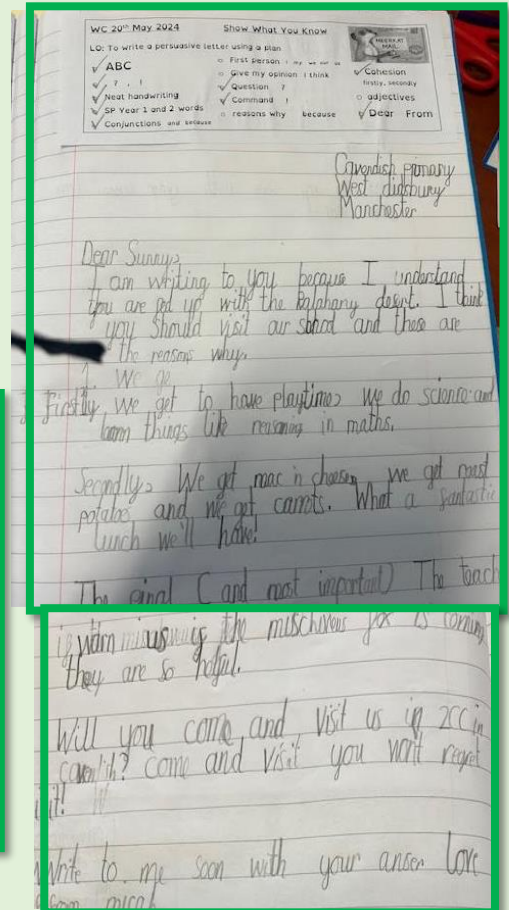 WC 20th May 2024 Show What You Know
LO: To write a persuasive letter using a plan
MEERKAT MAIL
ABC
. ? , !
Neat handwriting
SP Year 1 and 2 words
Conjunctions and because
First person I my we our us
Give my opinion I think
Question ?
Command !
reasons why because
Cohesion
firstly, secondly
adjectives
Dear From
Cavendish primary
West didsbury
Manchester
Dear Sunny,
I am writing to you becaus I understand
you are fed up with the kalahary desert. I think
you should visit our school and these are
the reasons why.
1 We ge
Firstly, we get to have playtime, we do science and
learn things like reasoning in maths.
Secondly, We get mac n we get roast
potatoes and we get carrots. What a fantastic
lunch we'll have!
The final (and most important) The teach
warn us is the mischivous fox is coming
they are so helful.
Will you come and visit us in 2CC in
come and visit you won't regret
it!
Write to me soon with your anser Love
from